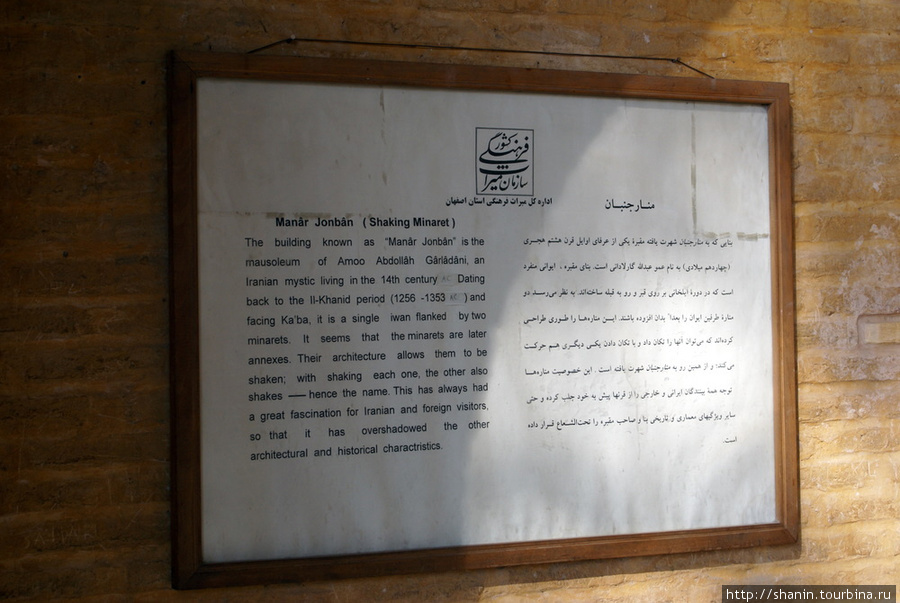 سازمان میراث فرهنگی کشور
اداره کل میراث فرهنگی استان اصفهان
Manâr Jonbân ( Shaking Minaret )
The building known as “Manâr Jonbân” is the
mausoleum of Amoo Abdollâh Gârlâdâni, an
Iranian mystic living in the 14th century Dating
back to the Il-Khanid period (1256 -1353 ) and
facing Ka'ba, it is a single iwan flanked by two
minarets. It seems that the minarets are later
annexes. Their architecture allows them to be
shaken; with shaking each one, the other also
shakes — hence the name. This has always had
a great fascination for Iranian and foreign visitors,
so that it has overshadowed the other
architectural and historical charactristics.
منارجنبان
بنایی که به منارجنبان شهرت یافته مقبرهٔ یکی از عرفای اوایل قرن هشتم هجـــری
(چهاردهم میلادی) به نام عمو عبدالله گارلادانی است. بنای مقبره ، ایوانی منفرد
است که در دورهٔ ایلخانی بر روی قبر و رو به قبله ساخته‌اند. به نظر می‌رســد دو
منارهٔ طرفین ایوان را بعداً بدان افزوده باشند. ایــن مناره‌هــا را طــوری طراحــی
کرده‌اند که می‌توان آنها را تکان داد و با تکان دادن یکــی دیگــری هــم حرکــت
می‌کند؛ و از همین رو به منارجنبان شهرت یافته است . این خصوصیت مناره‌هــا
توجه همهٔ بینندگان ایرانی و خارجی را از قرنها پیش به خود جذب کرده و حتی
سایر ویژگیهای معماری و تاریخی بنا و صاحب مقبره را تحت‌الشــعاع قــرار داده
است.
http://shanin.tourbina.ru